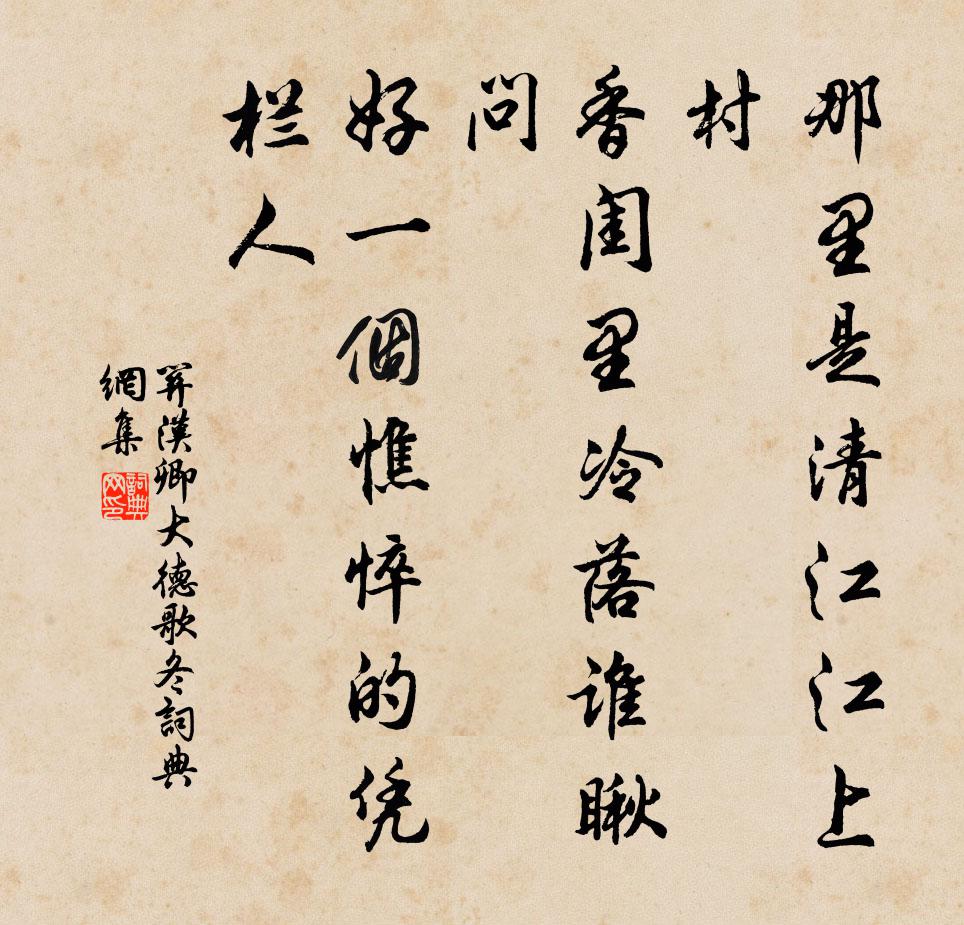 那里是清江江上
村
香闺里冷落谁瞅
问
好一個憔悴的凭
栏人
关漢卿大德歌冬詞典
網集
詞典
网印